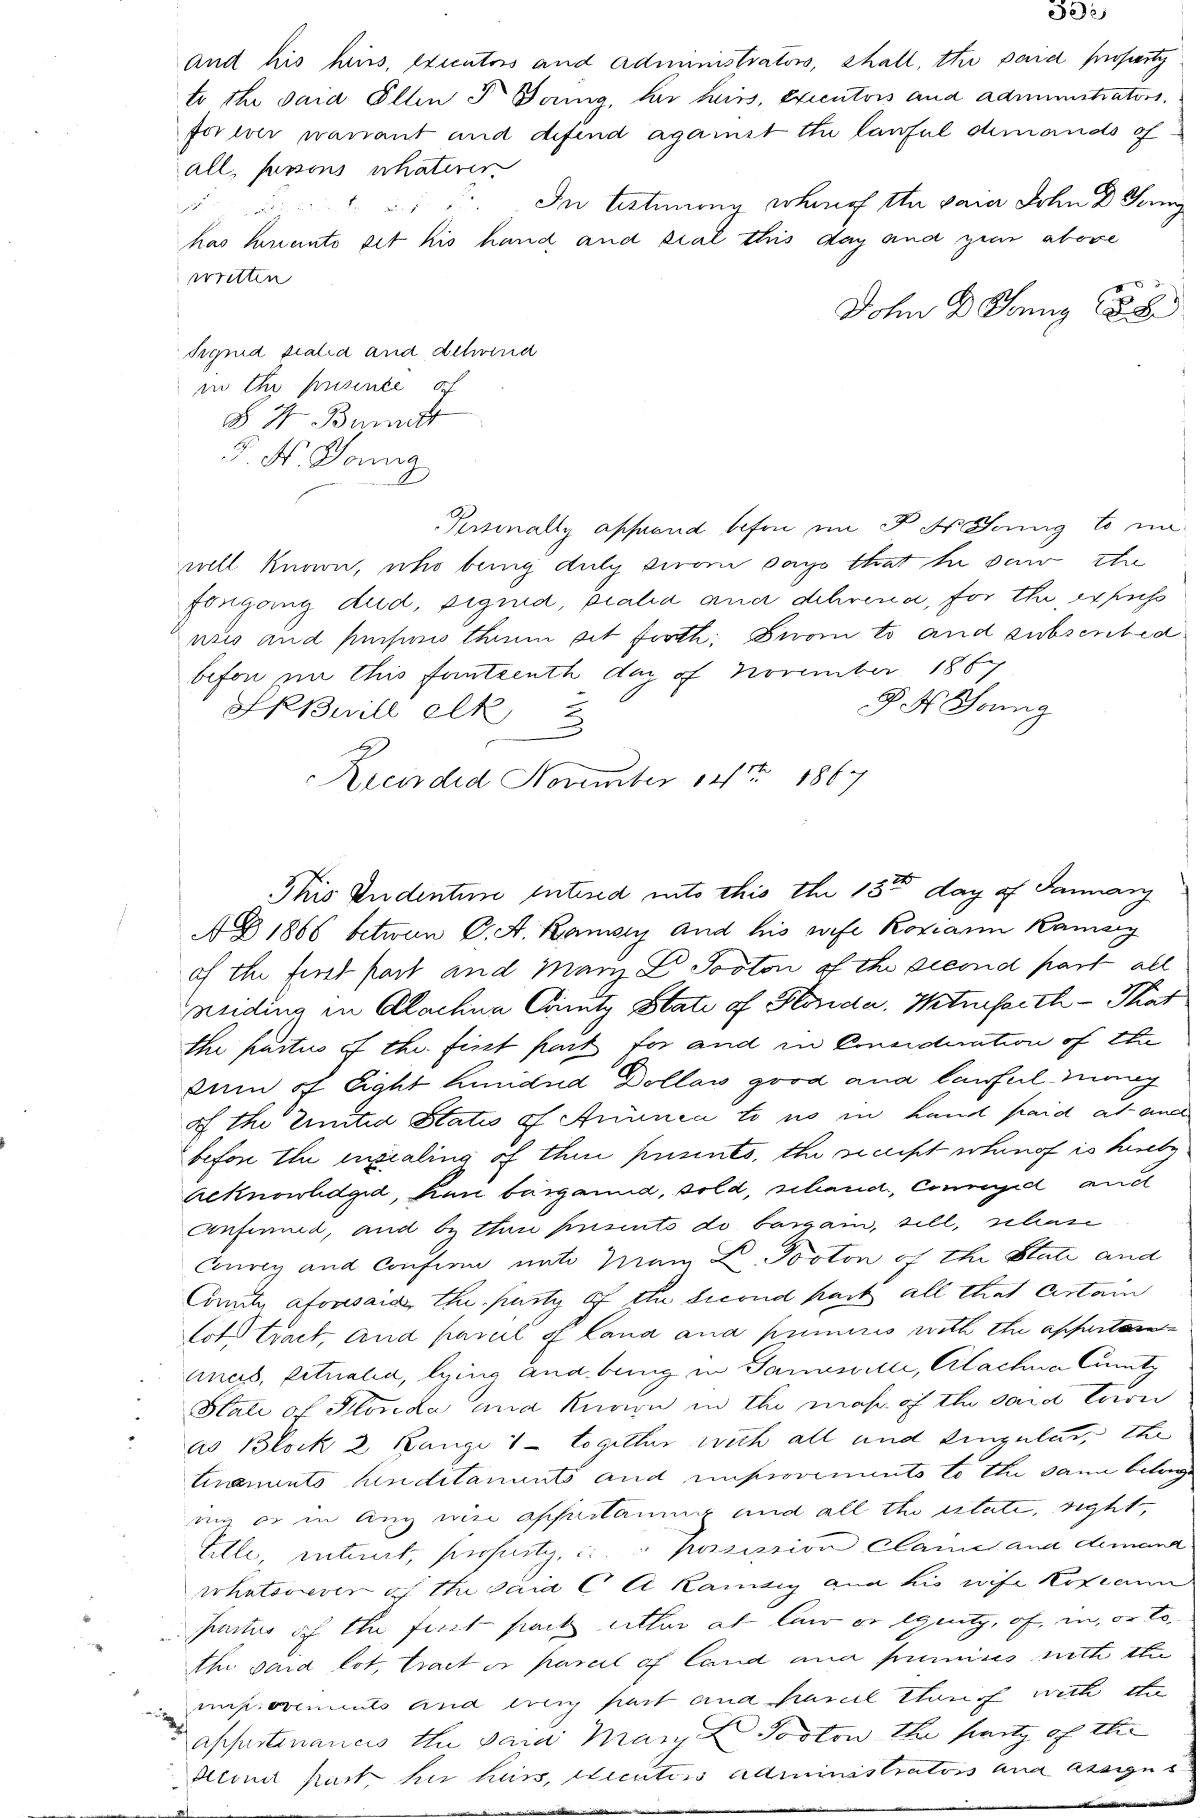 and his heirs, executors and administrators, shall, the said property
to the said Ellen T Young, her heirs, executors and administrators,
for ever warrant and defend against the lawful demands of
all, persons whatever.
In testimony whereof the said John D Young
has hereunto set his hand and seal this day and year above
written
John D Young
Signed sealed and delivered
in the presence of
S W Burnett
P. N. Young
Personally appeared before me P N Young to me
well Known, who being duly sworn says that he saw the
foregoing deed, signed, sealed and delivered, for the express
uses and purposes therein set forth; Sworn to and subscribed
before me this fourteenth day of November 1867
Bevill clk
P. N Young
Recorded November 14th 1867
This Indenture entered into this the 13th day of January
AD 1866 between C. A. Ramsey and his wife Roxiann Ramsey
of the first part and Mary L Tooton of the second part all
residing in Alachua County State of Florida. Witnesseth - That
the parties of the first part for and in Consideration of the
sum of Eight hundred Dollars good and lawful money
of the United States of America to us in hand paid at and
before the ensealing of these presents, the receipt whereof is hereby
acknowledged, have bargained, sold, released, conveyed and
confirmed, and by these presents do bargain, sell, release
convey and confirm unto Mary L. Tooton of the State and
County aforesaid, the party of the second part all that certain
lot, tract, and parcel of land and premises with the appurten-
ances, situated, lying and being in Gainesville, Alachua County
State of Florida and Known in the map of the said town
as Block 2 Range 1 - together with all and singular, the
tenaments hereditaments and improvements to the same belong
ing or in any wise appertaining and all the estate, right,
title, interest, property, possession claim and demand
whatsoever of the said C A Ramsey and his wife Roxiann
parties of the first part either at law or equity, of, in, or to,
the said lot, tract or parcel of land and premises with the
improvements and every part and parcel thereof with the
appurtenances the said Mary L Tooton the party of the
second part, her heirs, executors administrators and assigns